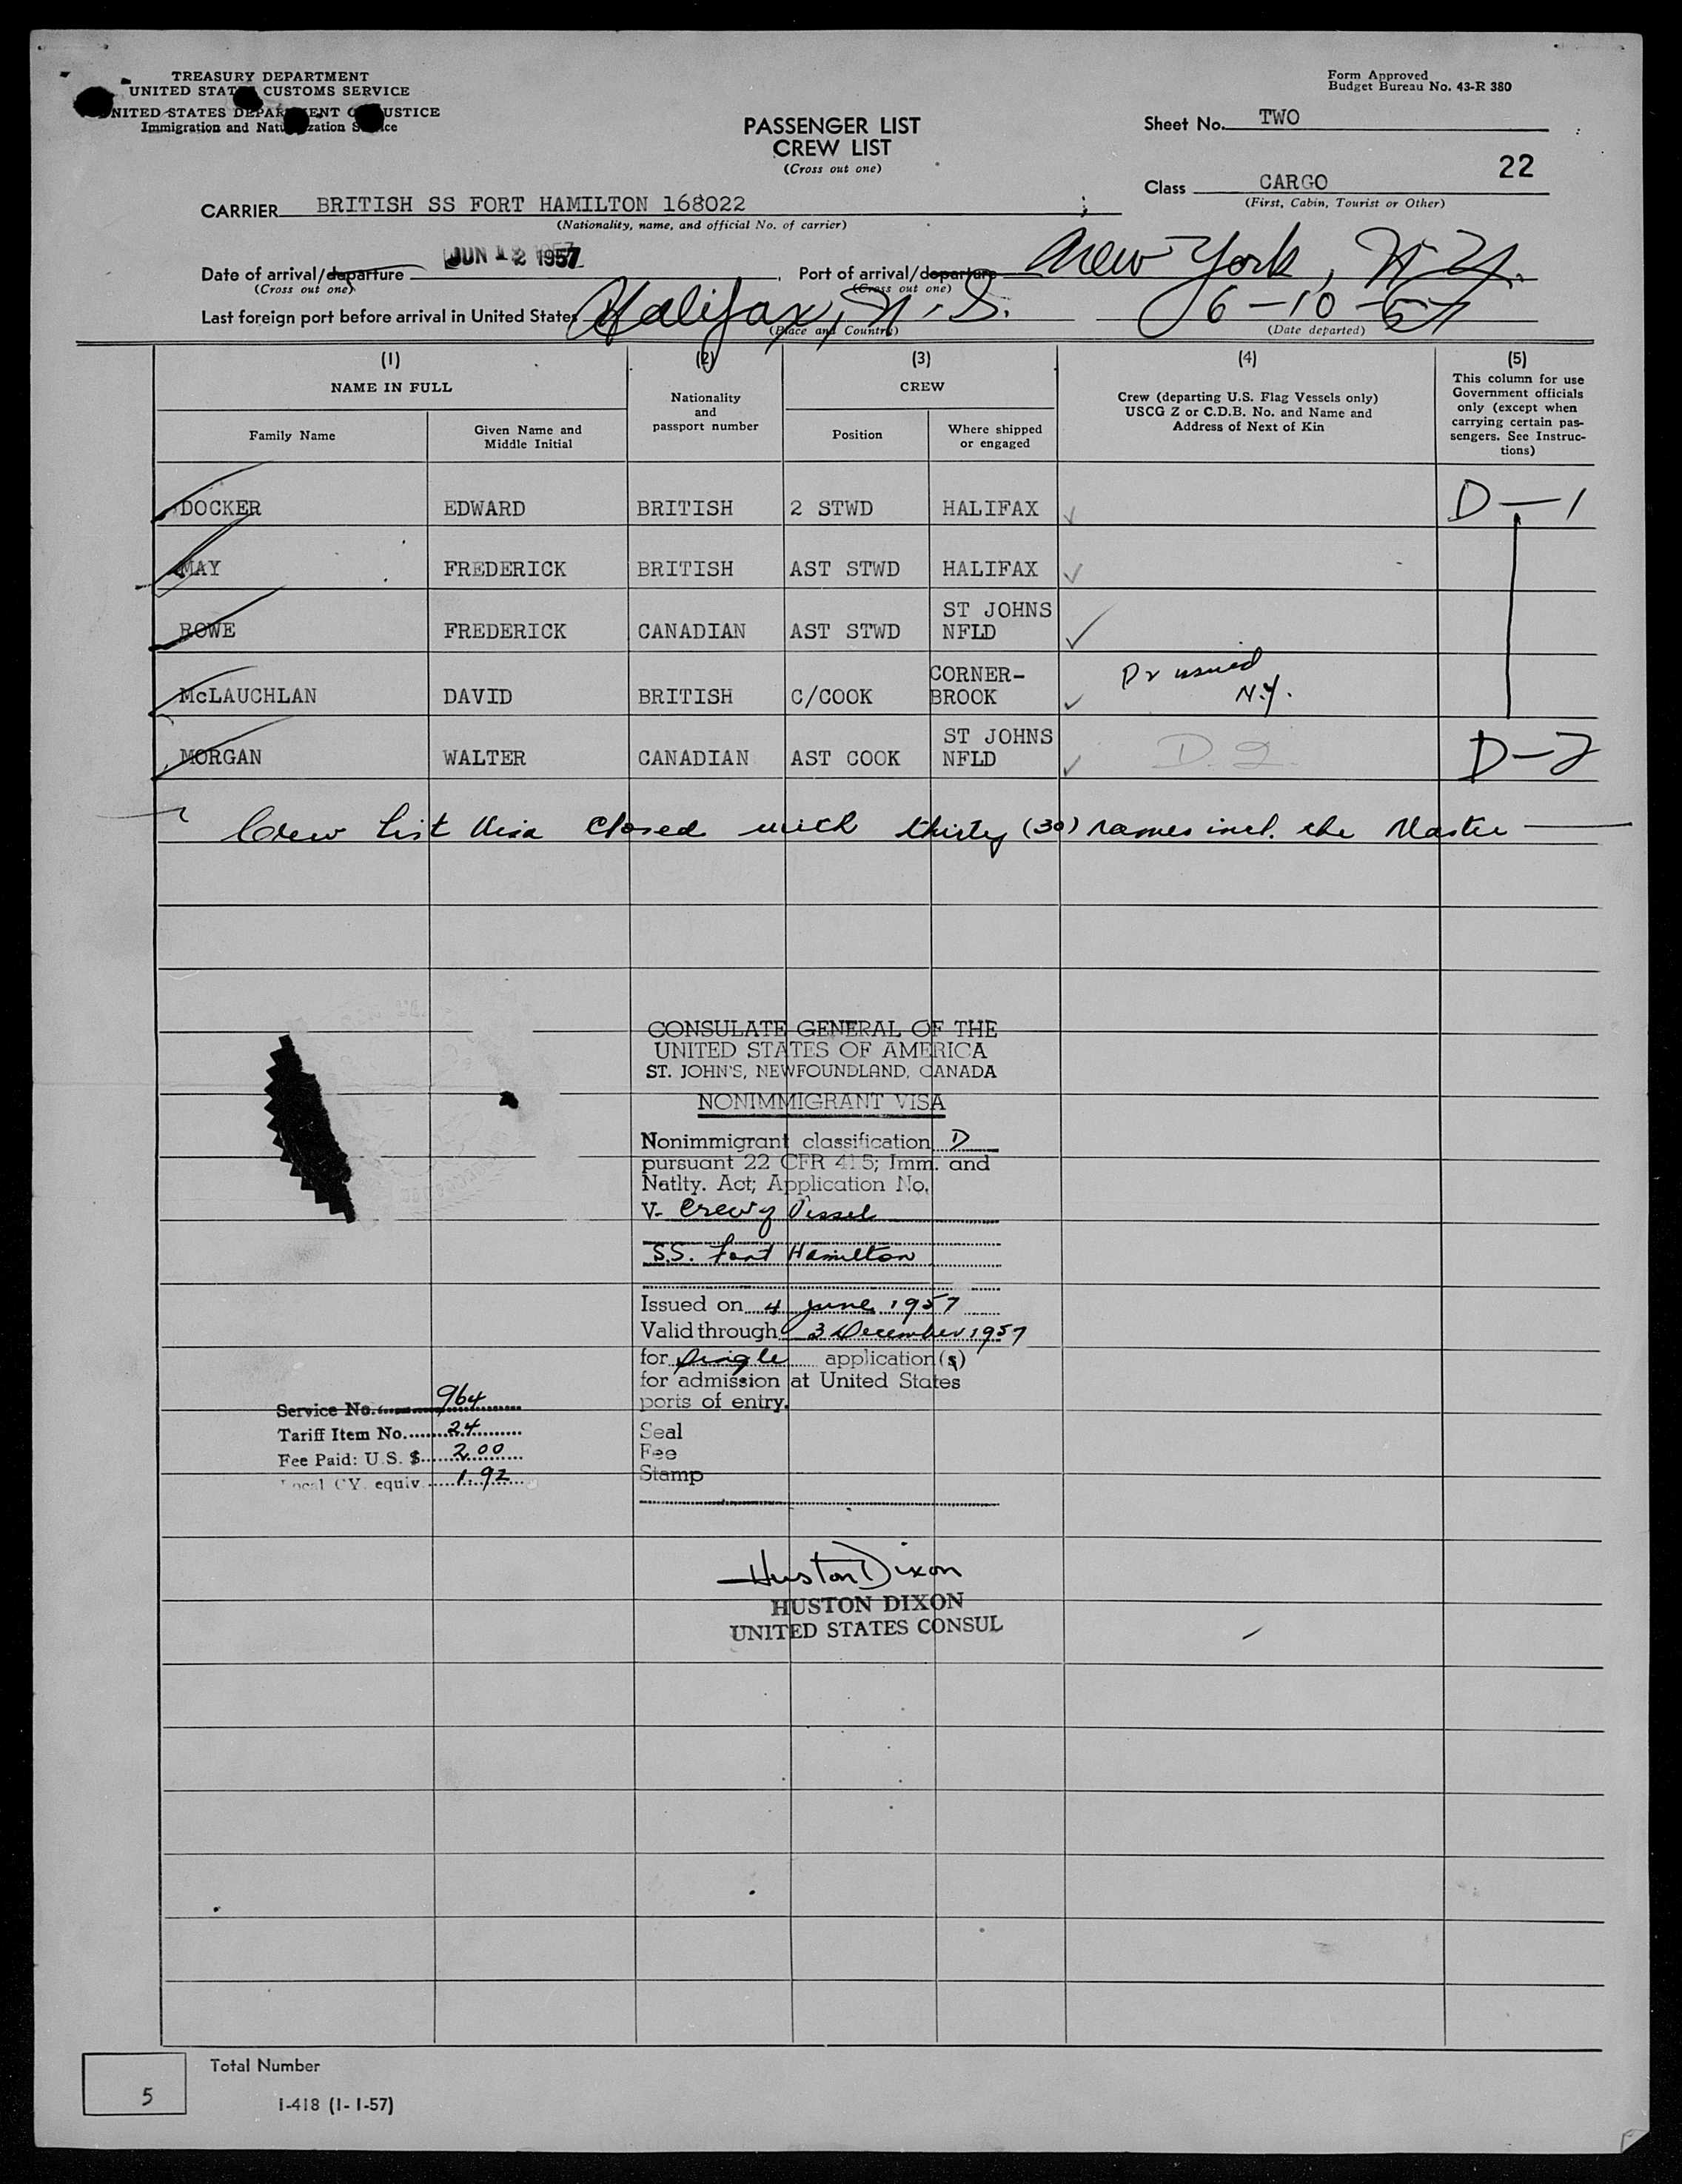 TREASURY DEPARTMENT
UNITED STATES CUSTOMS SERVICE
UNITED STATES DEPARTMENT OF JUSTICE
Immigration and Naturalization Service
Form Approved
Budget Bureau No. 43-R 380
PASSENGER LIST
CREW LIST
(Cross out one)
Sheet No. TWO
22
Class CARGO
(First, Cabin, Tourist or Other)
CARRIER BRITISH SS FORT HAMILTON 168022 ;
(Nationality, name, and official No. of carrier)
Date of arrival/departure JUN 12 1957 , Port of arrival/departure New York, N.Y.
(Cross out one) (Cross out one)
Last foreign port before arrival in United States Halifax, N.S. 6-10-57
(Place and Country) (Date departed)
(1) (2) (3) (4) (5)
NAME IN FULL
Family Name
Given Name and
Middle Initial
Nationality
and
passport number
CREW
Position
Where shipped
or engaged
Crew (departing U.S. Flag Vessels only)
USCG Z or C.D.B. No. and Name and
Address of Next of Kin
This column for use
Government officials
only (except when
carrying certain pas-
sengers. See Instruc-
tions)
DOCKER EDWARD BRITISH 2 STWD HALIFAX D-1
MAY FREDERICK BRITISH AST STWD HALIFAX
ROWE FREDERICK CANADIAN AST STWD ST JOHNS
NFLD
McLAUCHLAN DAVID BRITISH C/COOK CORNER-
BROOK issued
N.Y.
MORGAN WALTER CANADIAN AST COOK ST JOHNS
NFLD D.2. D-2
Crew List Visa closed with thirty (30) names incl. the Master
CONSULATE GENERAL OF THE
UNITED STATES OF AMERICA
ST. JOHN'S, NEWFOUNDLAND, CANADA
NONIMMIGRANT VISA
Nonimmigrant classification D
pursuant 22 CFR 41.5; Imm. and
Natlty. Act; Application No.
V- Crew of Vessel
S.S. Fort Hamilton
Issued on 4 June 1957
Valid through 3 December 1957
for single application(s)
for admission at United States
ports of entry.
Seal
Fee
Stamp
Service No. 964
Tariff Item No. 24
Fee Paid: U.S. $ 2.00
Local CY. equiv. 1.92
Huston Dixon
HUSTON DIXON
UNITED STATES CONSUL
5
Total Number
I-418 (1-1-57)